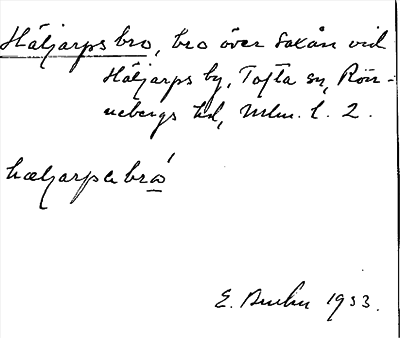 Häljarps bro, bro över Saxån vid
Häljarps by, Tofta sn, Rön-
nebergs hd, Mlm. l. 2.
hæljarpsbro
E. 1933.